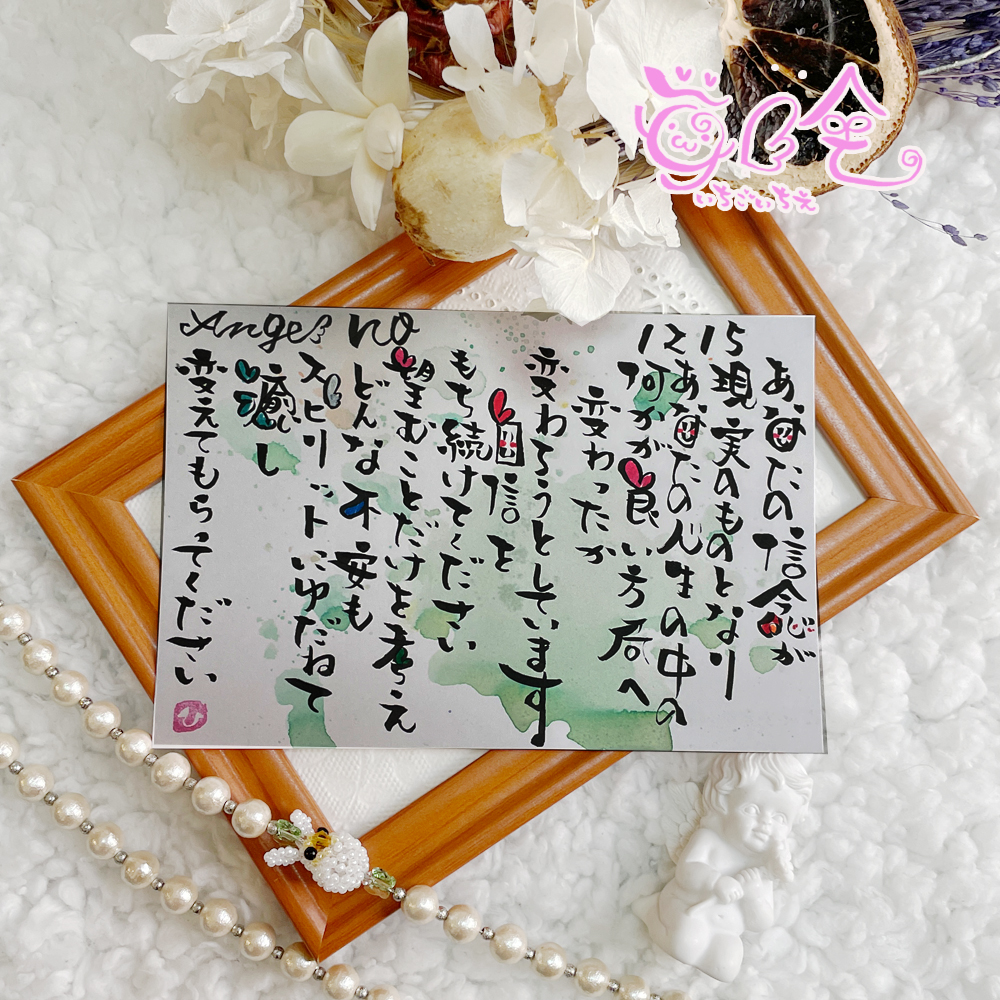 Angel no
1215
あなたの信念が
現実のものとなり
あなたの人生の中の
何かが良い方向へ
変わったか
変わろうとしています
自信を
もち続けてください
望むことだけを考え
どんな不安も
スピリットにゆだねて
癒し
変えてもらってください
ひ
いちごいちえ